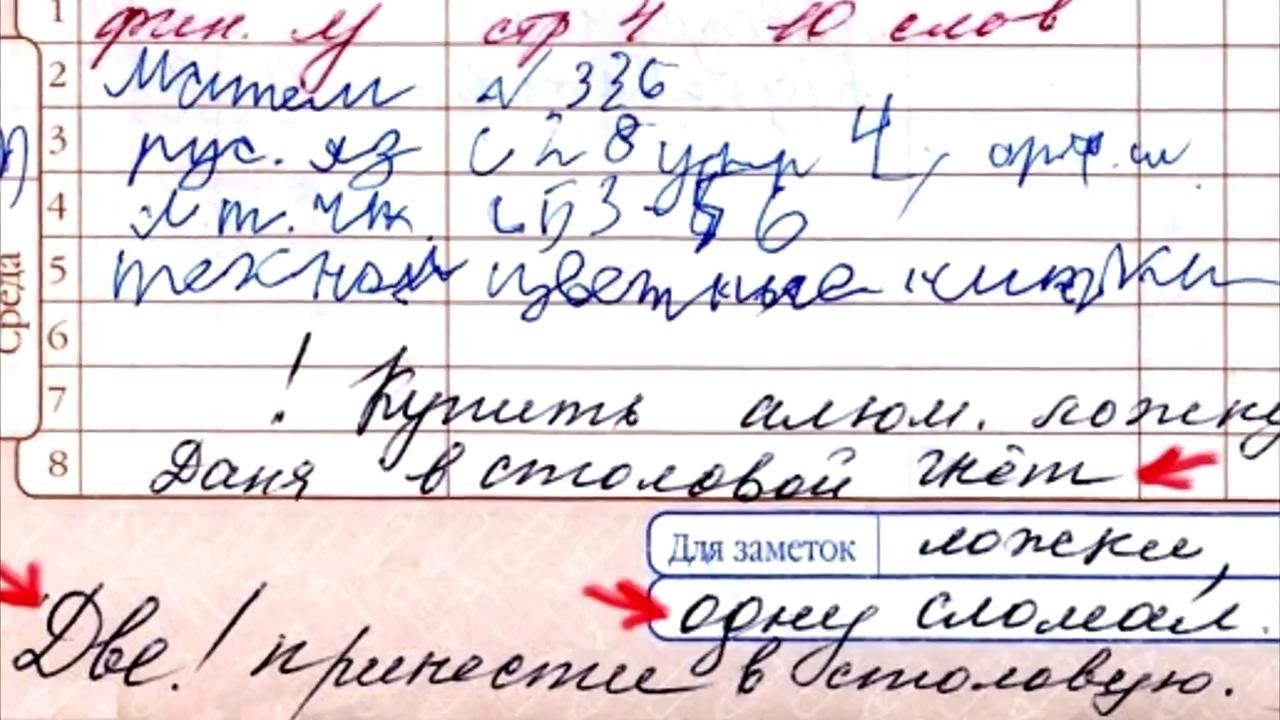 1 стр 4 10 слов
2 Матем № 336
3 рус. яз с 28 упр 4,
4 лит. чт. с 53-56
5 технол цветные нитки
6
7 ! Купить алюм. ложку
8 Даня в столовой гнёт
Среда
Для заметок ложки,
одну сломал.
Две! принести в столовую.